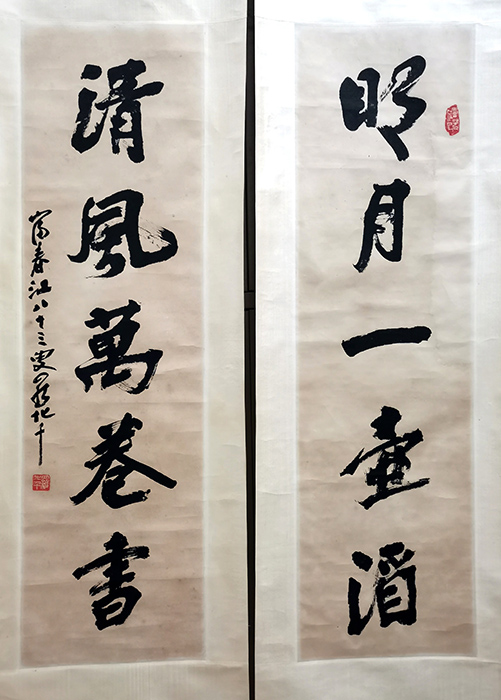 明月一壺酒
清風萬卷書
富春江八十三叟